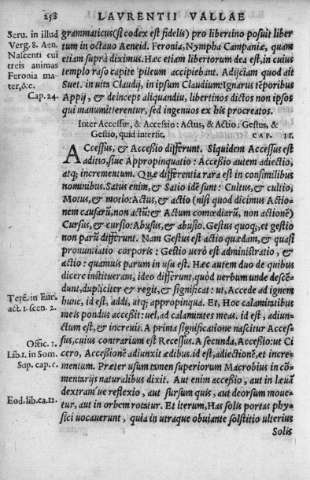 258 LAVRENTII VALLAE
Seru. in illud
Verg. 8. Aen.
Nascenti cui
treis animas
Feronia ma
ter, &c.
Cap. 24.
grammaticus (si codex est fidelis) pro libertino posuit liber
tum in octauo Aeneid. Feronia, Nympha Campaniæ, quam
etiam suprà diximus. Hæc etiam libertorum dea est, in cuius
templo raso capite pileum accipiebant. Adijciam quod ait
Suet. in uita Claudij, in ipsum Claudium: Ignarus tēporibus
Appij, & deinceps aliquandiu, libertinos dictos non ipsos
qui manumitterentur, sed ingenuos ex his procreatos.
Inter Accessus, & Accessio: Actus, & Actio: Gestus, &
Gestio, quid intersit. CAP. II.
ACcessus, & Accessio differunt. Siquidem Accessus est
aditio, siue Appropinquatio: Accessio autem adiectio,
atq; incrementum. Que differentia rara est in consimilibus
nominibus. Satus enim, & Satio idē sunt: Cultus, & cultio,
Motus, & motio: Actus, & actio (nisi quod dicimus Actio-
nem causarū, non actū: & Actum comœdiarū, non actionē)
Cursus, & cursio: Abusus, & abusio. Gestus quoq;, et gestio
non parū differunt. Nam Gestus est actio quædam, & quasi
pronuntiatio corporis: Gestio uerò est administratio, &
actio: quamuis parum in usu est. Hæc autem duo de quibus
dicere institueram, ideo differunt, quòd uerbum unde descē-
dunt, dupliciter & regit, & significat: ut, Accede ad ignem
hunc, id est, addi, atq; appropinqua. Et, Hoc calamitatibus
meis pondus accessit: uel, ad calamitates meas. id est, adiun-
ctum est, & increuit. A prima significatione nascitur Acces-
sus, cuius contrarium est Recessus. A secunda, Accessio: ut Ci
cero, Accessionē adiunxit ædibus. id est, adiectionē, et incre-
mentum. Præter usum tamen superiorum Macrobius in cō-
mentarijs naturalibus dixit. Aut enim accessio, aut in læuā
dextramue reflexio, aut sursum quis, aut deorsum moue-
tur, aut in orbem rotatur. Et iterum, Has solis portas phy-
sici uocauerunt, quia in utraque obuiante solstitio ulterius
Solis
Terē. in Eun.
act. 1. scen. 2.
Offic. 1.
Lib. 1. in Som.
Sup. cap. 6.
Eod. lib. ca. 12.